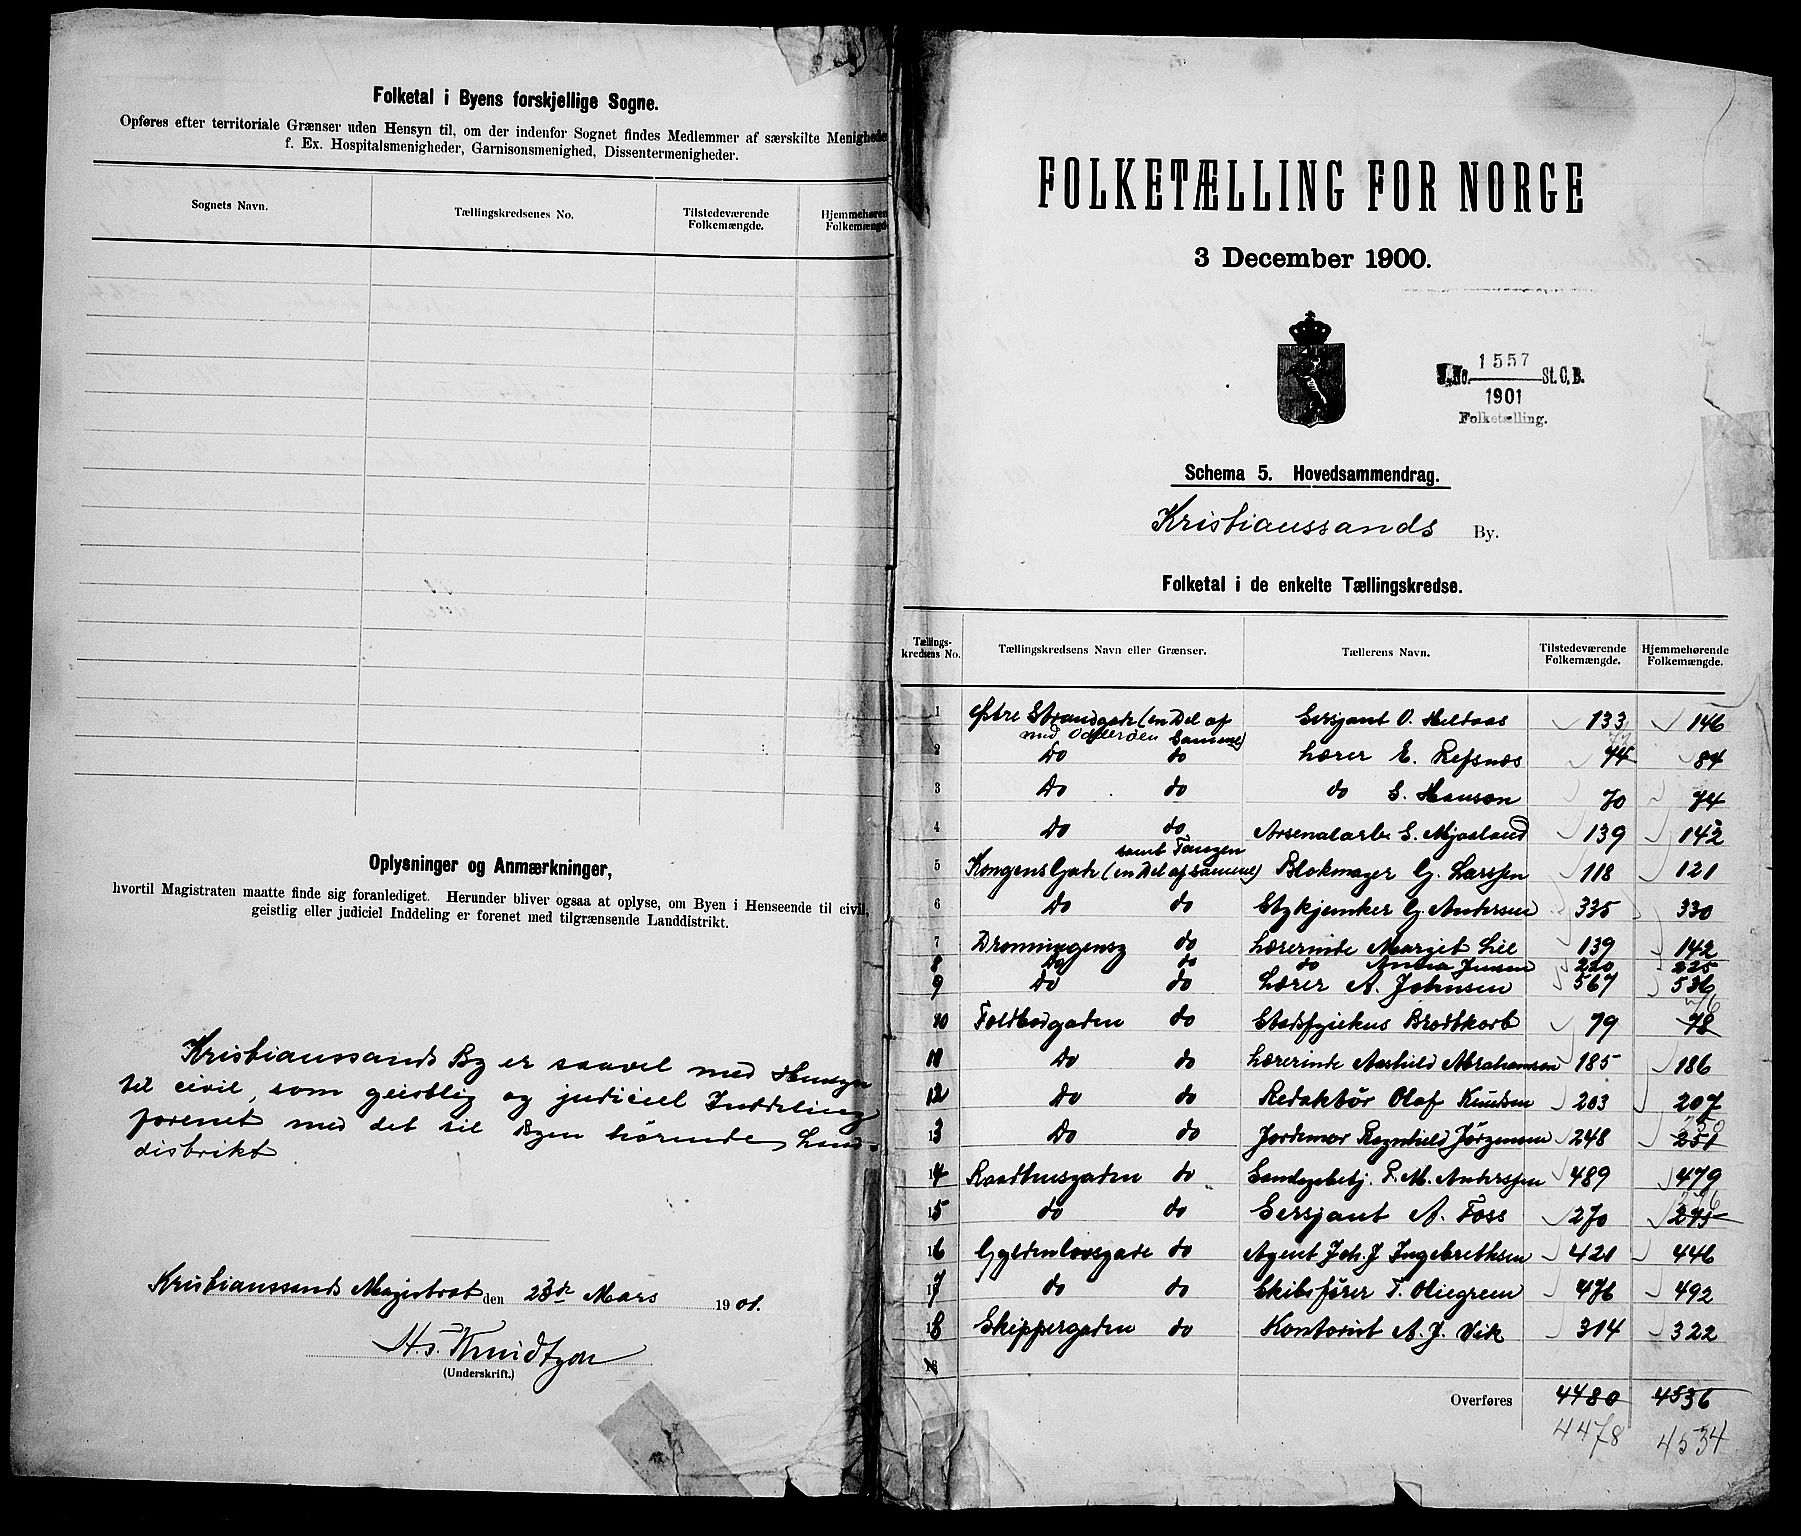 Folketal i Byens forskjellige Sogne.
Opføres efter territoriale Grænser uden Hensyn til, om der indenfor Sognet findes Medlemmer af særskilte Menighede
f. Ex. Hospitalsmenigheder, Garnisonsmenighed, Dissentermenigheder.
Sognets Navn. Tællingskredsenes No. Tilstedeværende Folkemængde. Hjemmehøren Folkemængd
Oplysninger og Anmærkninger,
hvortil Magistraten maatte finde sig foranlediget. Herunder bliver ogsaa at oplyse, om Byen i Henseende til civil,
geistlig eller judiciel Inddeling er forenet med tilgrænsende Landdistrikt.
Kristianssands By er saavel med Hensyn
til civil, som geistlig og judiciel Inddeling
forenet med det til Byen hørende Land-
distrikt
Kristianssands Magistrat den 23de Mars 1901.
(Underskrift.)
FOLKETÆLLING FOR NORGE
3 December 1900.
J. No. 1557 St. C. B.
1901
Folketælling.
Schema 5. Hovedsammendrag.
Kristianssands By.
Folketal i de enkelte Tællingskredse.
Tællings-kredsens No. Tællingskredsens Navn eller Grænser. Tællerens Navn. Tilstedeværende Folkemængde. Hjemmehørende Folkemængde.
1 Østre Strandgade (en Del af Sersjant O. Heltaas 133 146
med Odderøen Samme)
2 Do do Lærer E. Refsnæs 74 84
3 Do do do S. Hansen 70 74
4 Do do Arsenalarb. S. Mjaaland 139 142
samt Tangen
5 Kongens Gade (en Del af samme) Blokmager G. Larssen 118 121
6 Do do Stykjunker G. Andersen 335 330
7 Dronningensg do Lærerinde Margit Lie 139 142
8 Do do do Anna Jensen 220 225
9 Do do Lærer A. Johnsen 567 536
10 Toldbodgaden do Stadsfysikus Brodtkorb 79 78
11 Do do Lærerinde Aashild Abrahamsen 185 186
12 Do do Redaktør Olaf Knudsen 203 207
13 Do do Jordemor Ragnhild Jørgensen 248 251
14 Raadhusgaden do P. M. Anderssen 489 479
15 do do Sersjant A. Foss 270 275
16 Gyldenløvsgade do Agent Joh. J. Ingebrethsen 421 446
17 do do Skibsfører T. Oliegreen 476 492
18 Skippergaden do Kontorist A. J. Vik 314 322
18
Overføres 4480 4536
4478 4534